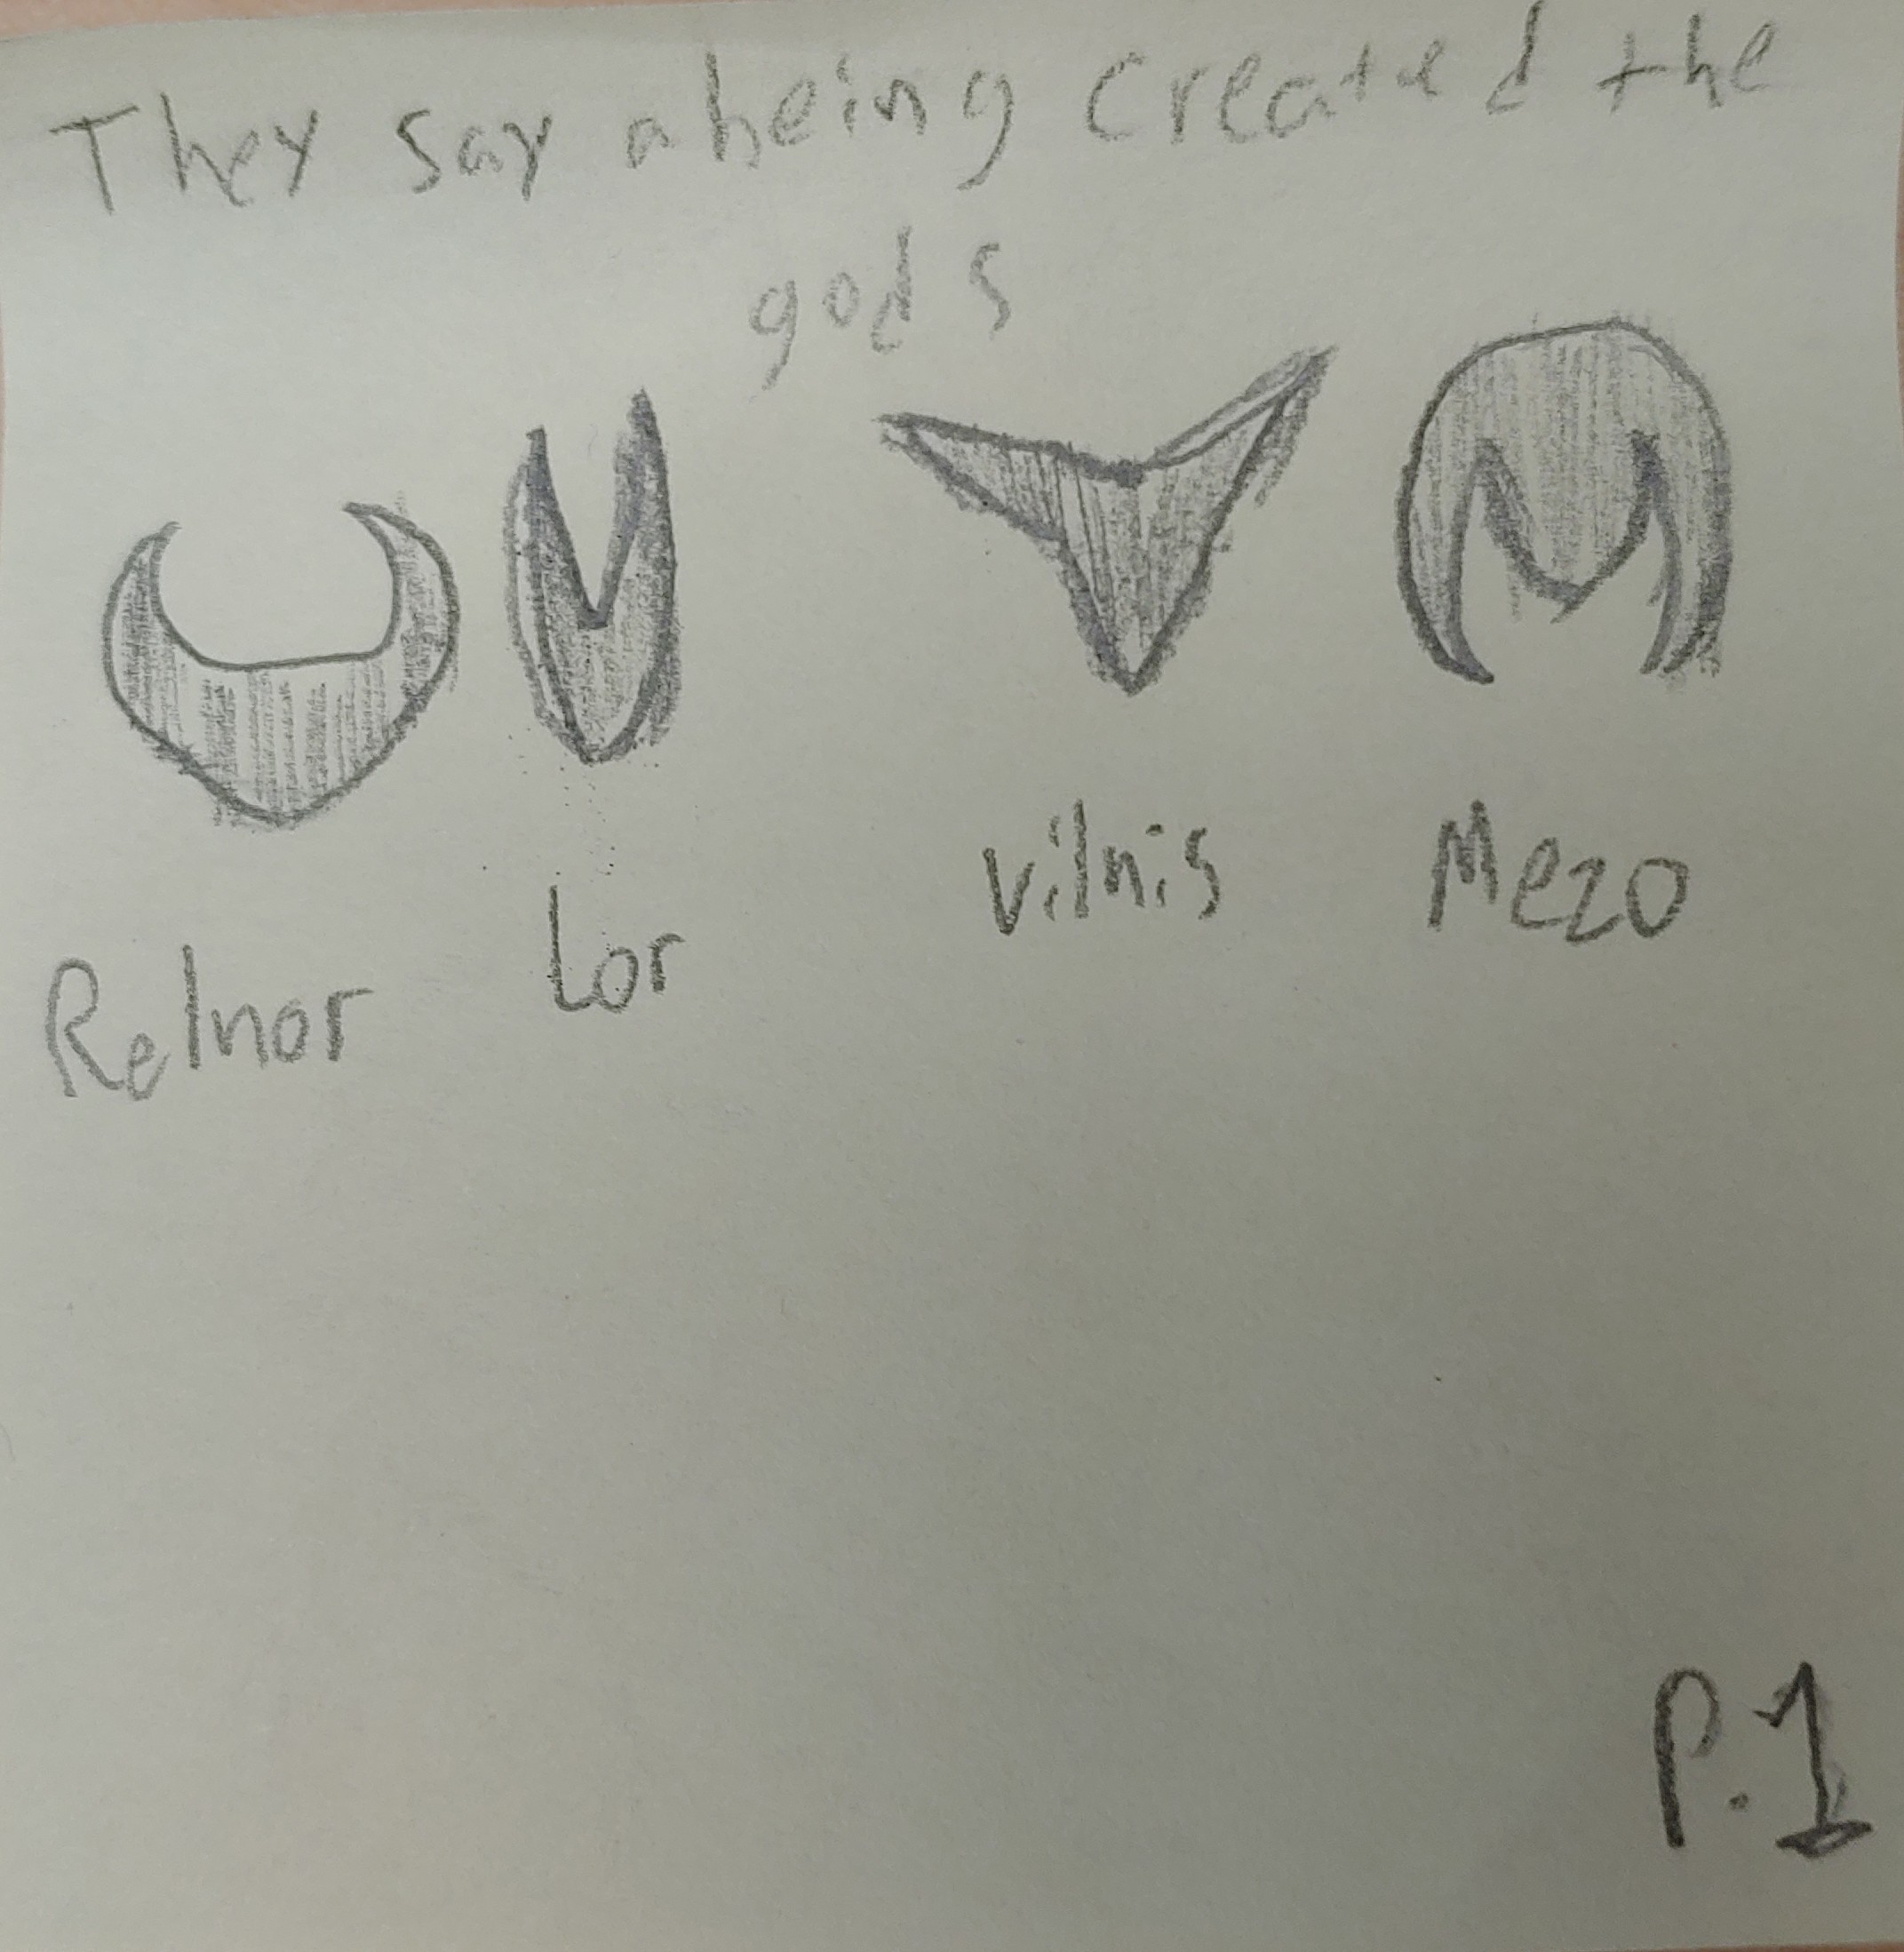 They say a being created the
gods
Relnor Lor Vilnis Mezo
P.1